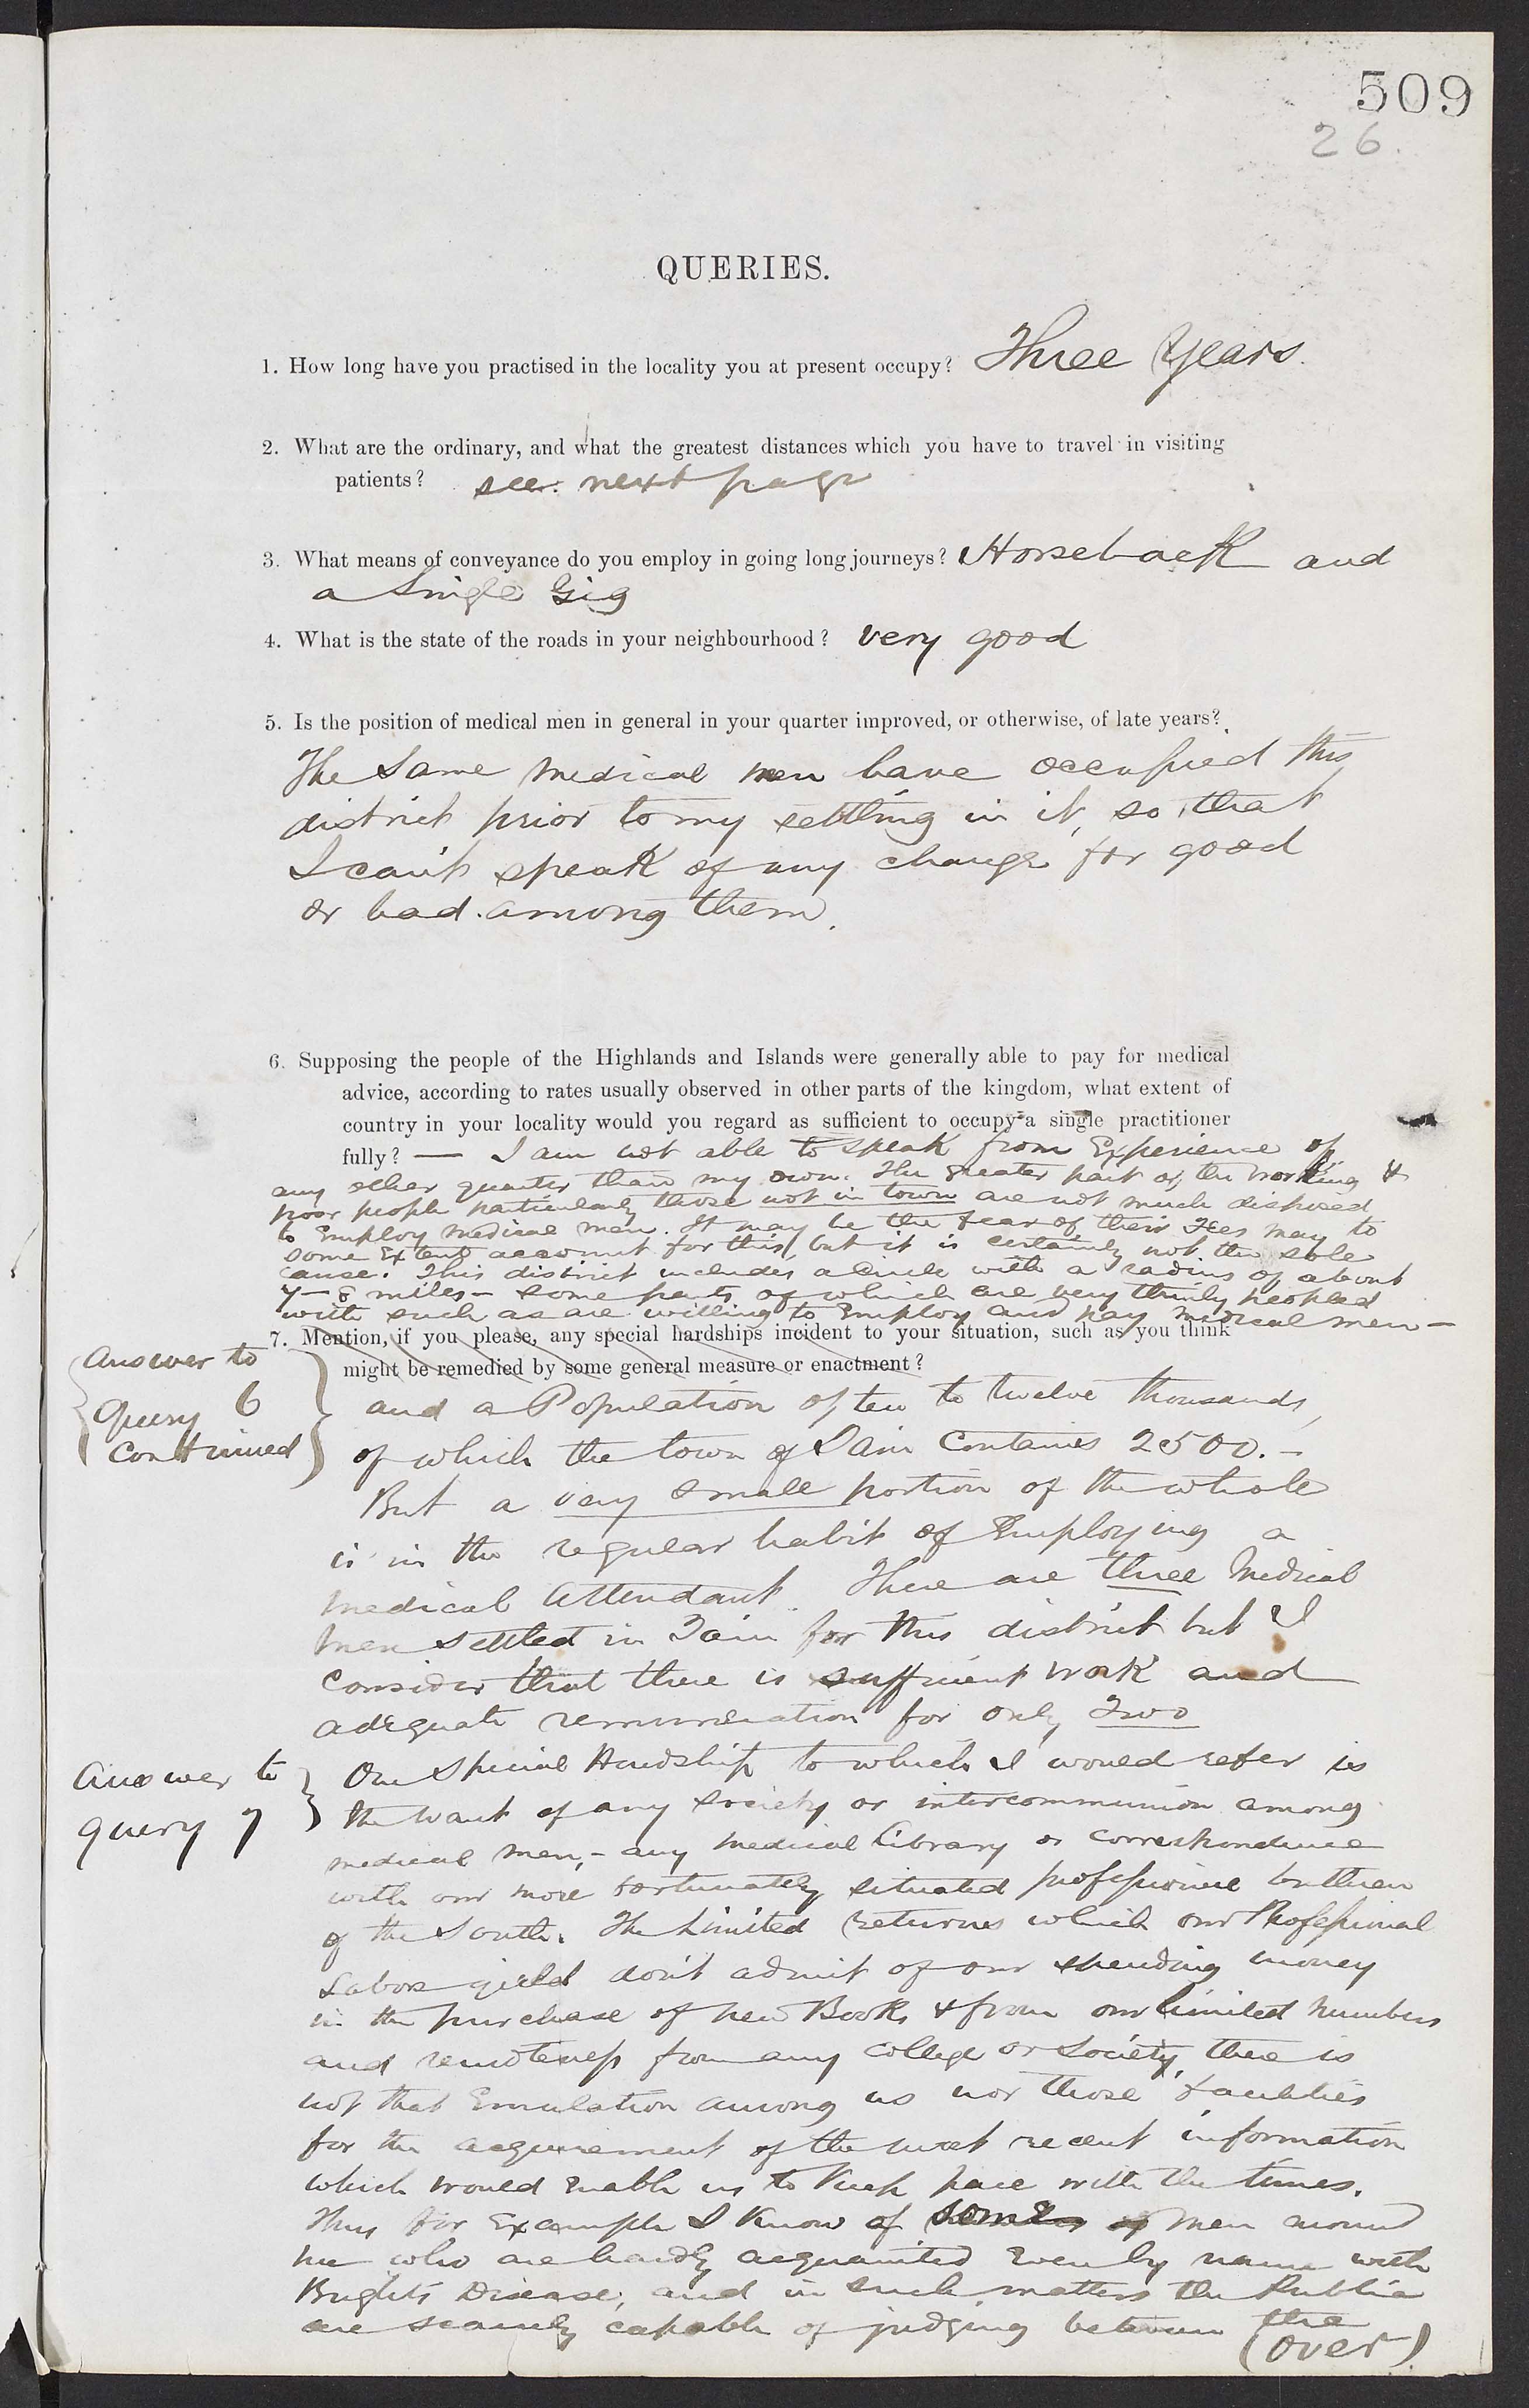 509
26.
QUERIES.
1. How long have you practised in the locality you at present occupy? Three Years.
2. What are the ordinary, and what the greatest distances which you have to travel in visiting
patients? see next page
3. What means of conveyance do you employ in going long journeys? Horseback and
a Single Gig
4. What is the state of the roads in your neighbourhood? very good
5. Is the position of medical men in general in your quarter improved, or otherwise, of late years?
The Same Medical men have occupied this
district prior to my settling in it, so that
I can't speak of any change for good
or bad among them.
6. Supposing the people of the Highlands and Islands were generally able to pay for medical
advice, according to rates usually observed in other parts of the kingdom, what extent of
country in your locality would you regard as sufficient to occupy a single practitioner
fully? — I am not able to speak from Experience of
any other quarter than my own. The greater part of the working &
poor people particularly those not in town are not much disposed
to Employ medical men. It may be the fear of their Fees may to
some Extent account for this, but it is certainly not the sole
cause. This district includes a Circle with a radius of about
7 - 8 miles - some parts of which are very thinly peopled
with such as are willing to Employ and pay medical men —
7. Mention, if you please, any special hardships incident to your situation, such as you think
might be remedied by some general measure or enactment?
Answer to
Query 6
Continued
and a Population of ten to twelve thousands,
of which the town of Tain Contains 2500. -
But a very small portion of the whole
is in the regular habit of Employing a
medical Attendant. There are three Medical
men settled in Tain for this district but I
consider that there is sufficient work and
adequate remuneration for only Two
Answer to
query 7
One Special Hardship to which I would refer is
the want of any Society or intercommunion among
medical men, - any medical Library or correspondence
with our more fortunately situated professional brethren
of the South. The Limited returns which our Professional
Labors yield don't admit of our spending money
in the purchase of new Books & from our limited numbers
and remoteness from any College or Society, there is
not that Emulation among us nor those facilities
for the acquirement of the most recent information
which would Enable us to Keep pace with the times.
Thus for Example I Know of some men around
me who are hardly acquainted Even by name with
Bright's Disease, and in such matters the Public
are scarcely capable of judging between the
(over)